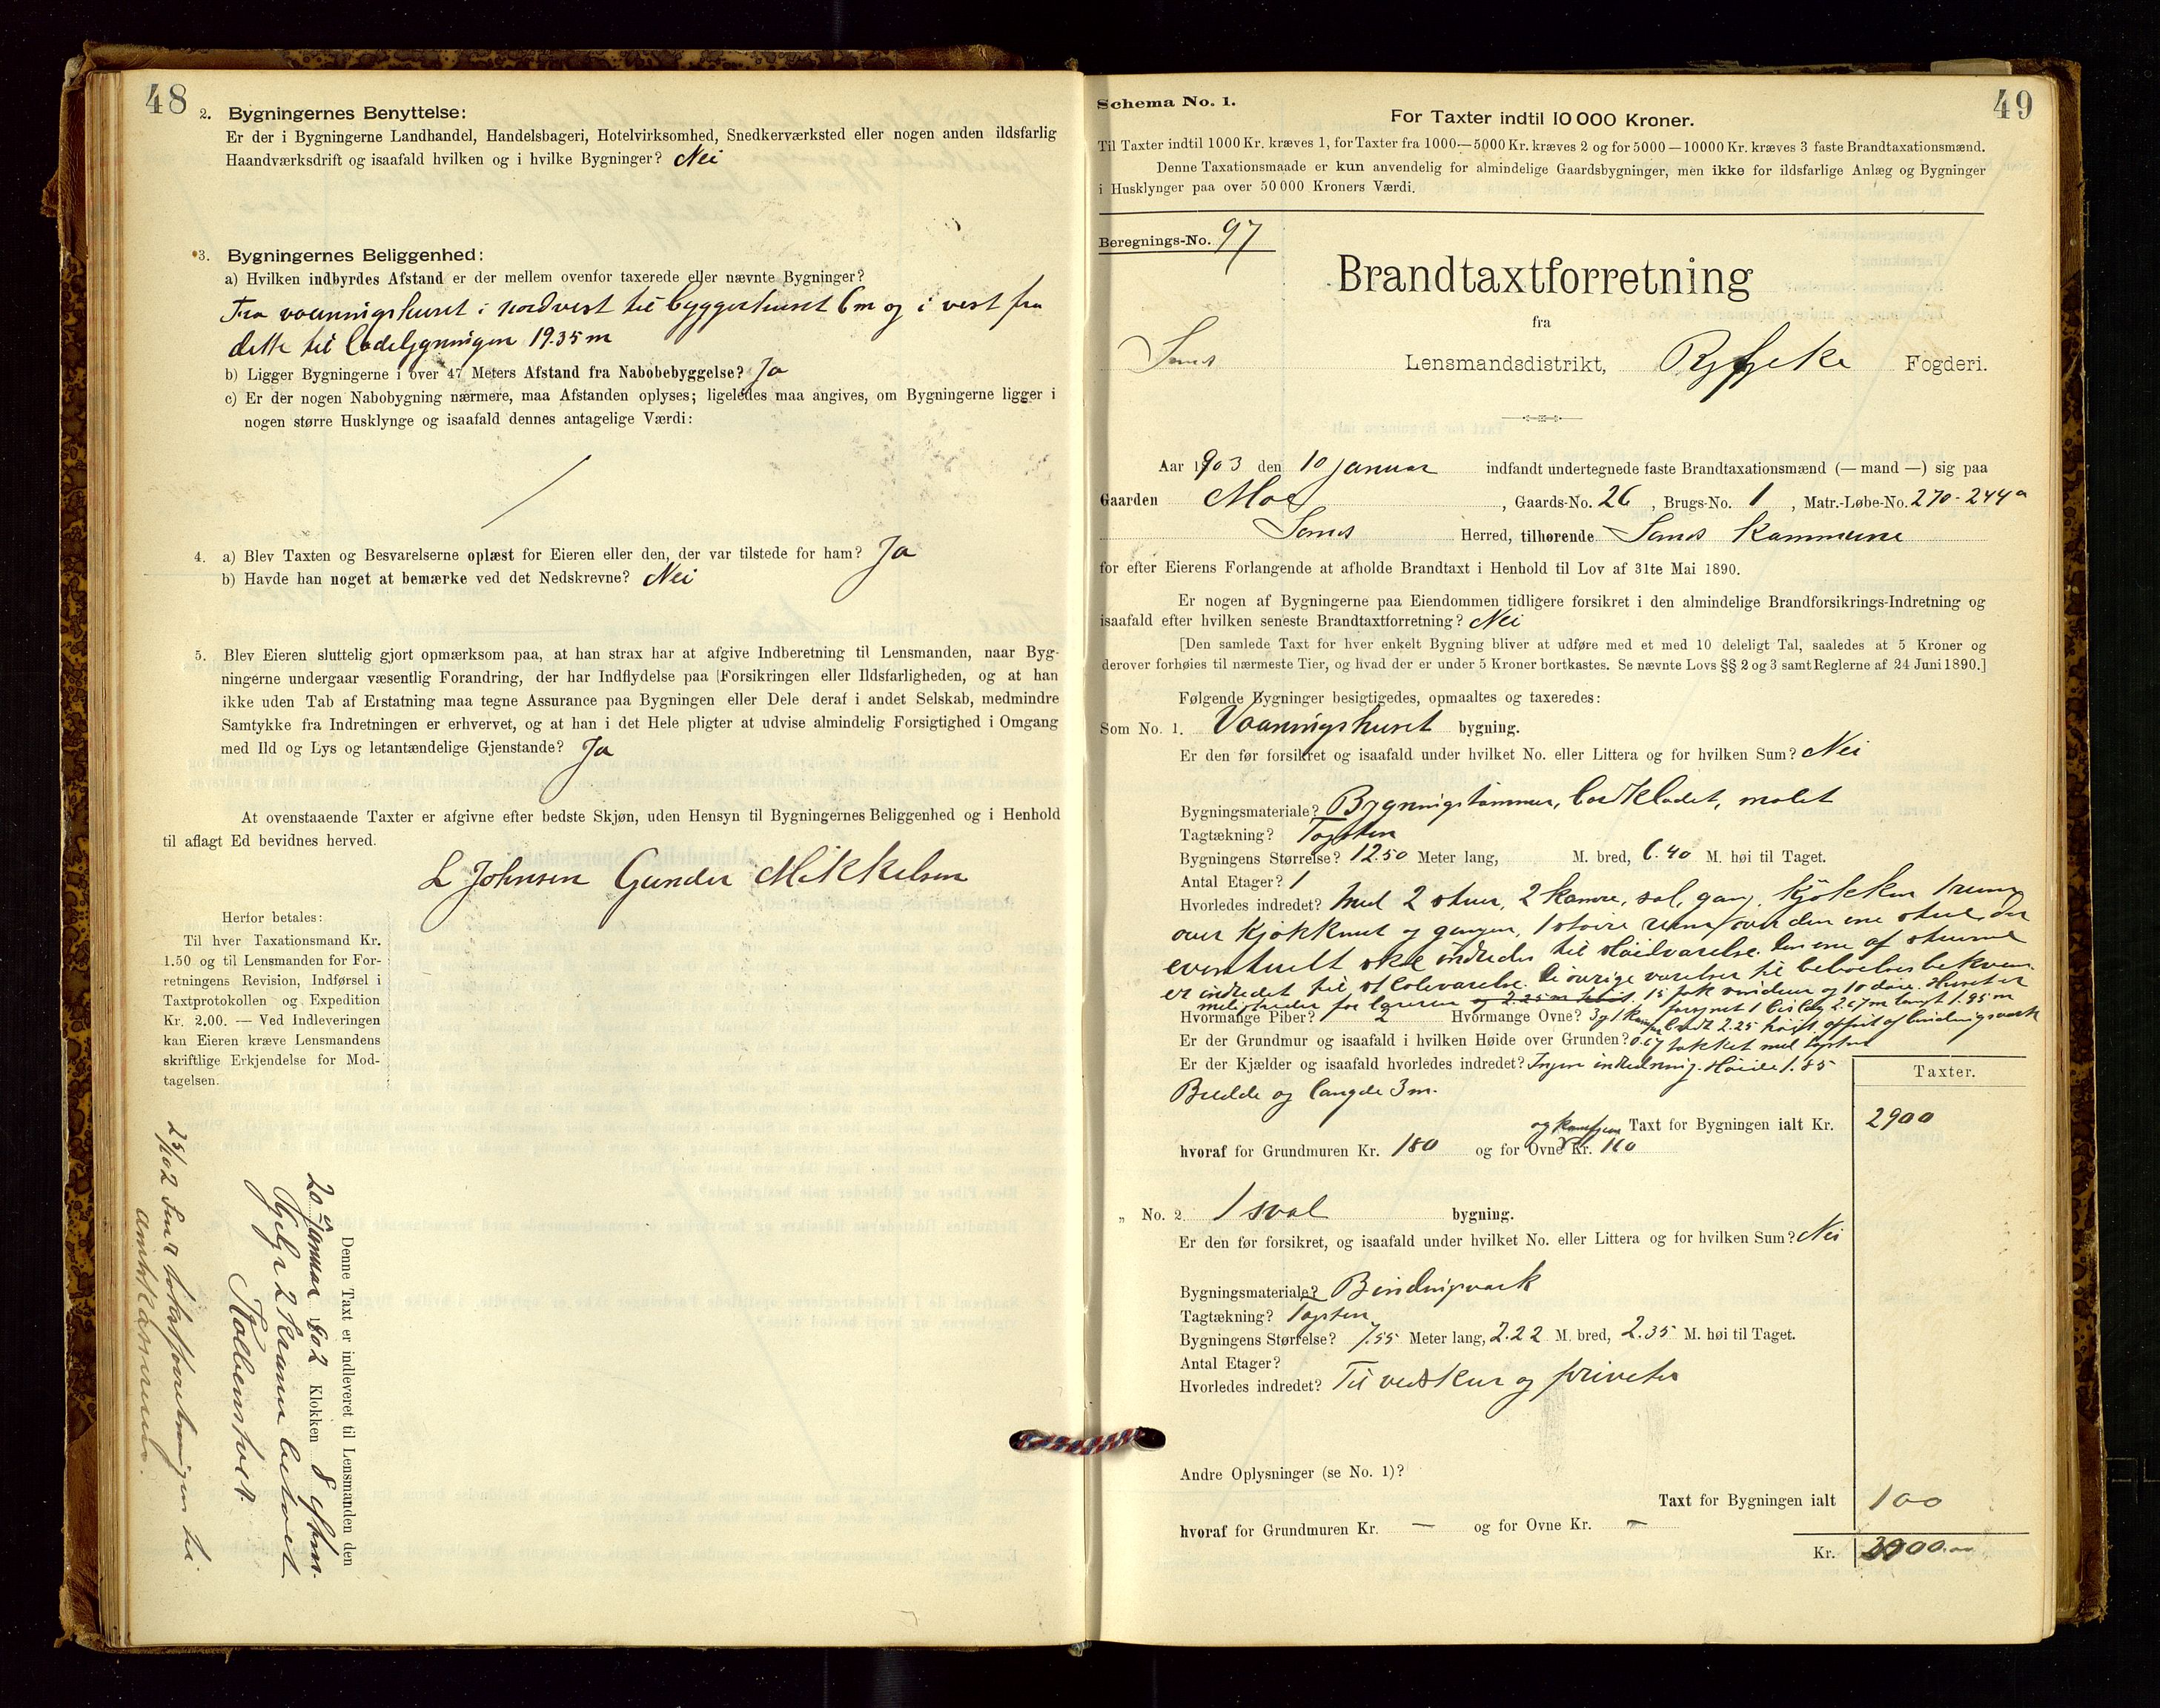 48
2. Bygningernes Benyttelse:
Er der i Bygningerne Landhandel, Handelsbageri, Hotelvirksomhed, Snedkerværksted eller nogen anden ildsfarlig
Haandværksdrift og isaafald hvilken og i hvilke Bygninger? Nei
3. Bygningernes Beliggenhed:
a) Hvilken indbyrdes Afstand er der mellem ovenfor taxerede eller nævnte Bygninger?
Fra vaaningshuset i nordvest til byggerhuset 6 m og i vest fra
dette til ladebygningen 19.35 m
b) Ligger Bygningerne i over 47 Meters Afstand fra Nabobebyggelse? Ja
c) Er der nogen Nabobygning nærmere, maa Afstanden oplyses; ligeledes maa angives, om Bygningerne ligger i
nogen større Husklynge og isaafald dennes antagelige Værdi:
4. a) Blev Taxten og Besvarelserne oplæst for Eieren eller den, der var tilstede for ham? Ja
b) Havde han noget at bemærke ved det Nedskrevne? Nei
5. Blev Eieren sluttelig gjort opmærksom paa, at han strax har at afgive Indberetning til Lensmanden, naar Byg-
ningerne undergaar væsentlig Forandring, der har Indflydelse paa (Forsikringen eller Ildsfarligheden, og at han
ikke uden Tab af Erstatning maa tegne Assurance paa Bygningen eller Dele deraf i andet Selskab, medmindre
Samtykke fra Indretningen er erhvervet, og at han i det Hele pligter at udvise almindelig Forsigtighed i Omgang
med Ild og Lys og letantændelige Gjenstande? Ja
At ovenstaaende Taxter er afgivne efter bedste Skjøn, uden Hensyn til Bygningernes Beliggenhed og i Henhold
til aflagt Ed bevidnes herved.
L Johnsen Gunder Mikkelsen
Herfor betales:
Til hver Taxationsmand Kr.
1.50 og til Lensmanden for For-
retningens Revision, Indførsel i
Taxtprotokollen og Expedition
Kr. 2.00. — Ved Indleveringen
kan Eieren kræve Lensmandens
skriftlige Erkjendelse for Mod-
tagelsen.
Denne Taxt er indleveret til Lensmanden den
20 Januar 1902 Klokken 8 Efterm.
Gebyr 2 Kroner betalt
Kolbenstvedt
Schema No. 1.
49
For Taxter indtil 10 000 Kroner.
Til Taxter indtil 1000 Kr. kræves 1, for Taxter fra 1000—5000 Kr. kræves 2 og for 5000—10000 Kr. kræves 3 faste Brandtaxationsmænd.
Denne Taxationsmaade er kun anvendelig for almindelige Gaardsbygninger, men ikke for ildsfarlige Anlæg og Bygninger
i Husklynger paa over 50 000 Kroners Værdi.
Beregnings-No. 97
Brandtaxtforretning
fra
Sand Lensmandsdistrikt, Ryfylke Fogderi.
Aar 1903 den 10 Januar indfandt undertegnede faste Brandtaxationsmænd (— mand —) sig paa
Gaarden Moe, Gaards-No. 26, Brugs-No. 1, Matr.-Løbe-No. 270-244a
Sands Herred, tilhørende Sands Kommune
for efter Eierens Forlangende at afholde Brandtaxt i Henhold til Lov af 31te Mai 1890.
Er nogen af Bygningerne paa Eiendommen tidligere forsikret i den almindelige Brandforsikrings-Indretning og
isaafald efter hvilken seneste Brandtaxtforretning? Nei
[Den samlede Taxt for hver enkelt Bygning bliver at udføre med et med 10 deleligt Tal, saaledes at 5 Kroner og
derover forhøies til nærmeste Tier, og hvad der er under 5 Kroner bortkastes. Se nævnte Lovs §§ 2 og 3 samt Reglerne af 24 Juni 1890.]
Følgende Bygninger besigtigedes, opmaaltes og taxeredes:
Som No. 1. Vaaningshuset bygning.
Er den før forsikret og isaafald under hvilket No. eller Littera og for hvilken Sum? Nei
Bygningsmateriale? Bygningstømmer, bordkladet, malet
Tagtækning? Tagsten
Bygningens Størrelse? 12.50 Meter lang, M. bred, 6.40 M. høi til Taget.
Antal Etager? 1
Hvorledes indredet? Med 2 stuer, 2 kamre, sal, gang, kjøkken 1 rum
over kjøkkenet og gangen, 1 større rum over den ene stue, der
eventuelt skal indredes til af stuerne
er indredet til skoleværelse. De øvrige værelser til beboelses bekvem
meligheder for læreren 15 fak vinduer og 10 døre. Huset er
forsynet 1 bislag 2.67m langt 1.95 m
Hvormange Piber? 2 Hvormange Ovne? 3 og 1 bredt 2.25 høit opført af bindingsværk
Er der Grundmur og isaafald i hvilken Høide over Grunden? 0.67 takket med tagsten
Er der Kjælder og isaafald hvorledes indredet? Ingen indredning. Høide 1.85
Bredde og længde 3 m.
Taxter.
og komfyren Taxt for Bygningen ialt Kr. 2900
hvoraf for Grundmuren Kr. 180 og for Ovne Kr. 160
„ No. 2. 1 sval bygning.
Er den før forsikret, og isaafald under hvilket No. eller Littera og for hvilken Sum? Nei
Bygningsmateriale? Bindingsværk
Tagtækning? Tagsten
Bygningens Størrelse? 7.55 Meter lang, 2.22 M. bred, 2.35 M. høi til Taget.
Antal Etager?
Hvorledes indredet? Til vedskur og priveter
Andre Oplysninger (se No. 1)?
Taxt for Bygningen ialt 100
hvoraf for Grundmuren Kr. — og for Ovne Kr. —
Kr. 3000.00